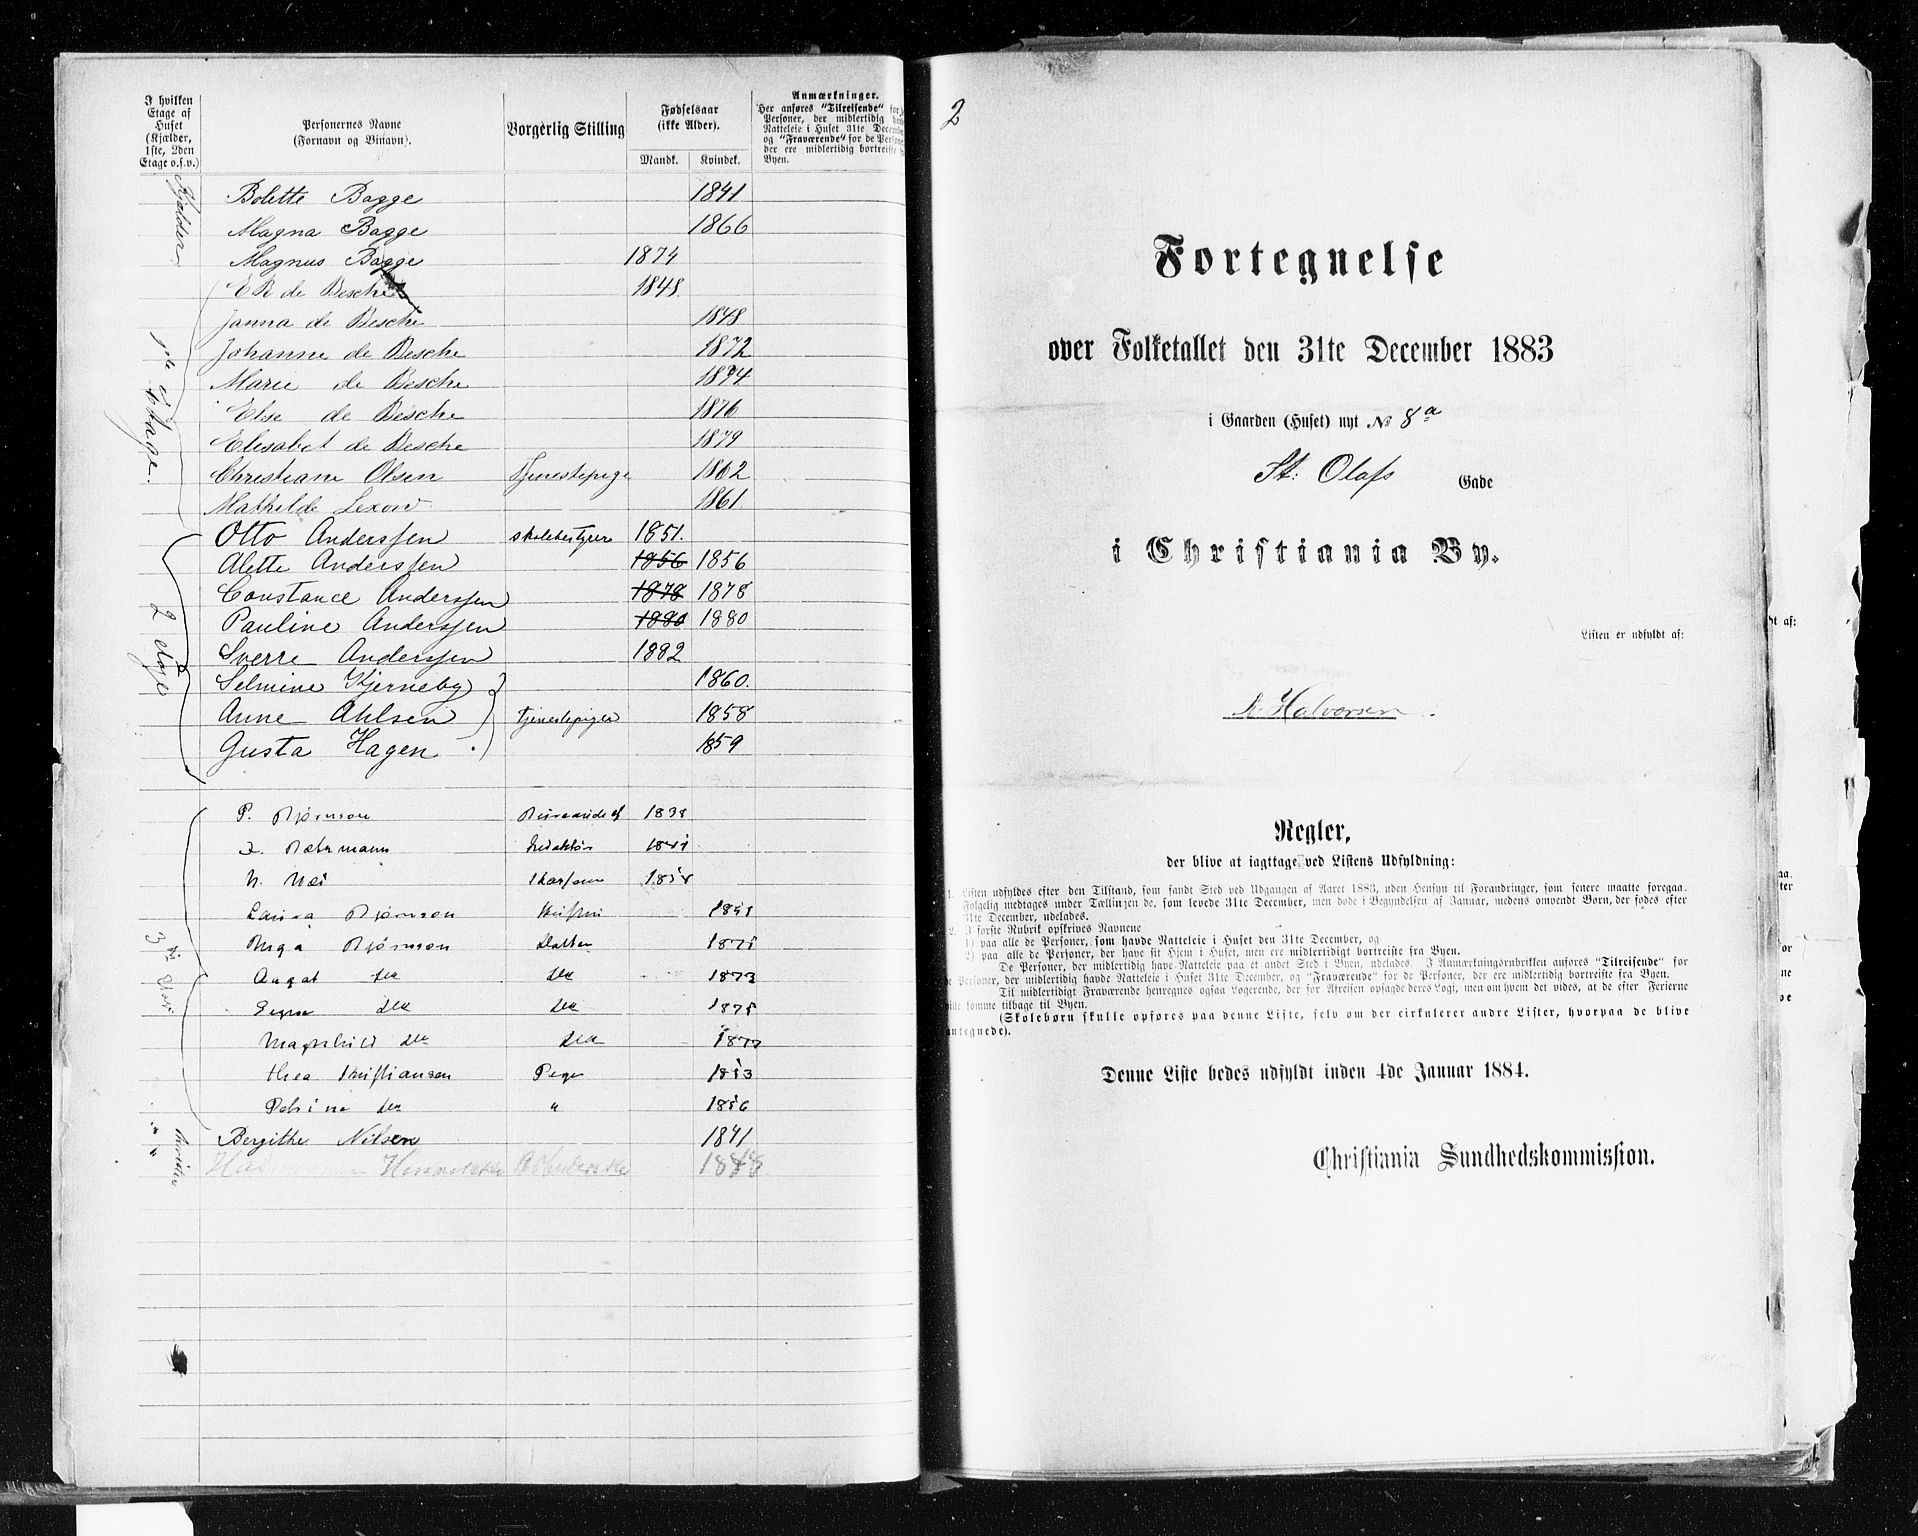 I hvilken
Etage af
Huset
(Kjælder,
1ste, 2den
Etage o.s.v.)
Personernes Navne
(Fornavn og Binavn).
Borgerlig Stilling
Fødselsaar
(ikke Alder).
Mandk. Kvindek.
Anmærkninger.
Her anføres "Tilreisende" for
Personer, der midlertidig
Natteleie i Huset 31te Decem
og "Fraværende" for de Person
der ere midlertidig bortreiste
Byen.
Kjælder
Bolette Bagge 1841
Magna Bagge 1866
Magnus Bagge 1874
1ste Etage.
E R de Besche 1848.
Janna de Besche 1848
Johanne de Besche 1872
Marie de Besche 1874
Else de Besche 1876
Elisabet de Besche 1879
Christiane Olsen Tjenestepige 1862
Mathilde Lexow 1861
2 Etage
Otto Anderssen skolebestyrer 1851.
Alette Anderssen 1856 1856
Constance Anderssen 1878 1878
Pauline Anderssen 1880 1880
Sverre Anderssen 1882
Selmine Kjerneby 1860.
Anne Ahlsen tjenestepiger 1858
Gusta Hagen 1859
3
P. Bjørnson
Redaktør
Bjørnson
Bjørnson Datter
do do 1873
do do
Magnhild do do
Thea Kristiansen Pige
Petrine do "
Bergithe Nilsen 1841
1848
2
Fortegnelse
over Folketallet den 31te December 1883
i Gaarden (Huset) nyt № 8a
St: Olafs Gade
i Christiania By.
Listen er udfyldt af:
Halvorsen
Regler,
der blive at iagttage ved Listens Udfyldning:
1. Listen udfyldes efter den Tilstand, som fandt Sted ved Udgangen af Aaret 1883, uden Hensyn til Forandringer, som senere maatte foregaa.
Følgelig medtages under Tællingen de, som levede 31te December, men døde i Begyndelsen af Januar, medens omvendt Børn, der fødes efter
31te December, udelades.
2. I første Rubrik opskrives Navnene
1) paa alle de Personer, som havde Natteleie i Huset den 31te December, og
2) paa alle de Personer, der have sit Hjem i Huset, men ere midlertidigt bortreiste fra Byen.
De Personer, der midlertidig have Natteleie paa et andet Sted i Byen, udelades. I Anmærkningsrubrikken anføres "Tilreisende" for
de Personer, der midlertidig havde Natteleie i Huset 31te December, og "Fraværende" for de Personer, der ere midlertidig bortreiste fra Byen.
Til midlertidigt Fraværende henregnes ogsaa Logerende, der før Afreisen opsagde deres Logi, men om hvem det vides, at de efter Ferierne
ville komme tilbage til Byen.
(Skolebørn skulle opføres paa denne Liste, selv om der cirkulerer andre Lister, hvorpaa de blive
antegnede).
Denne Liste bedes udfyldt inden 4de Januar 1884.
Christiania Sundhedskommission.